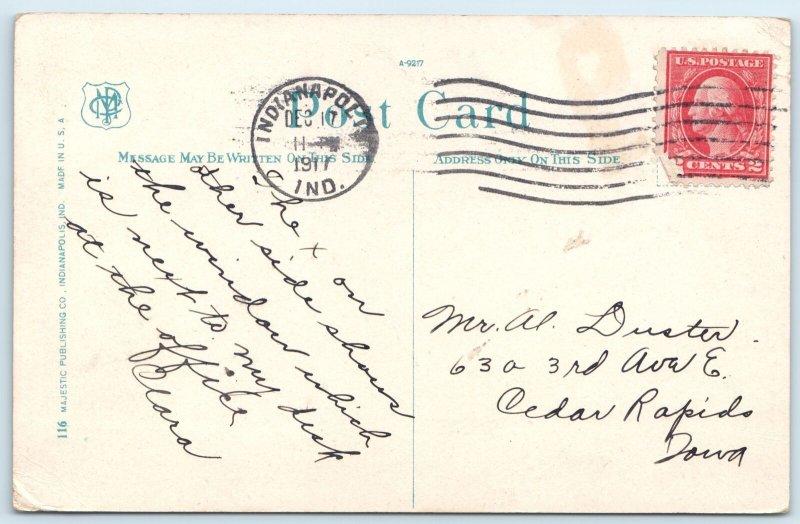 A-9217
Post Card
MESSAGE MAY BE WRITTEN ON THIS SIDE
ADDRESS ONLY ON THIS SIDE
INDIANAPOLIS
DEC 17
11
1917
IND.
U.S. POSTAGE
2 CENTS 2
The x on
other side shows
the window which
is next to my desk
at the office
Clara
Mr. Al. Duster.
630 3rd Ave E.
Cedar Rapids
Iowa
116 MAJESTIC PUBLISHING CO., INDIANAPOLIS, IND. MADE IN U.S.A.